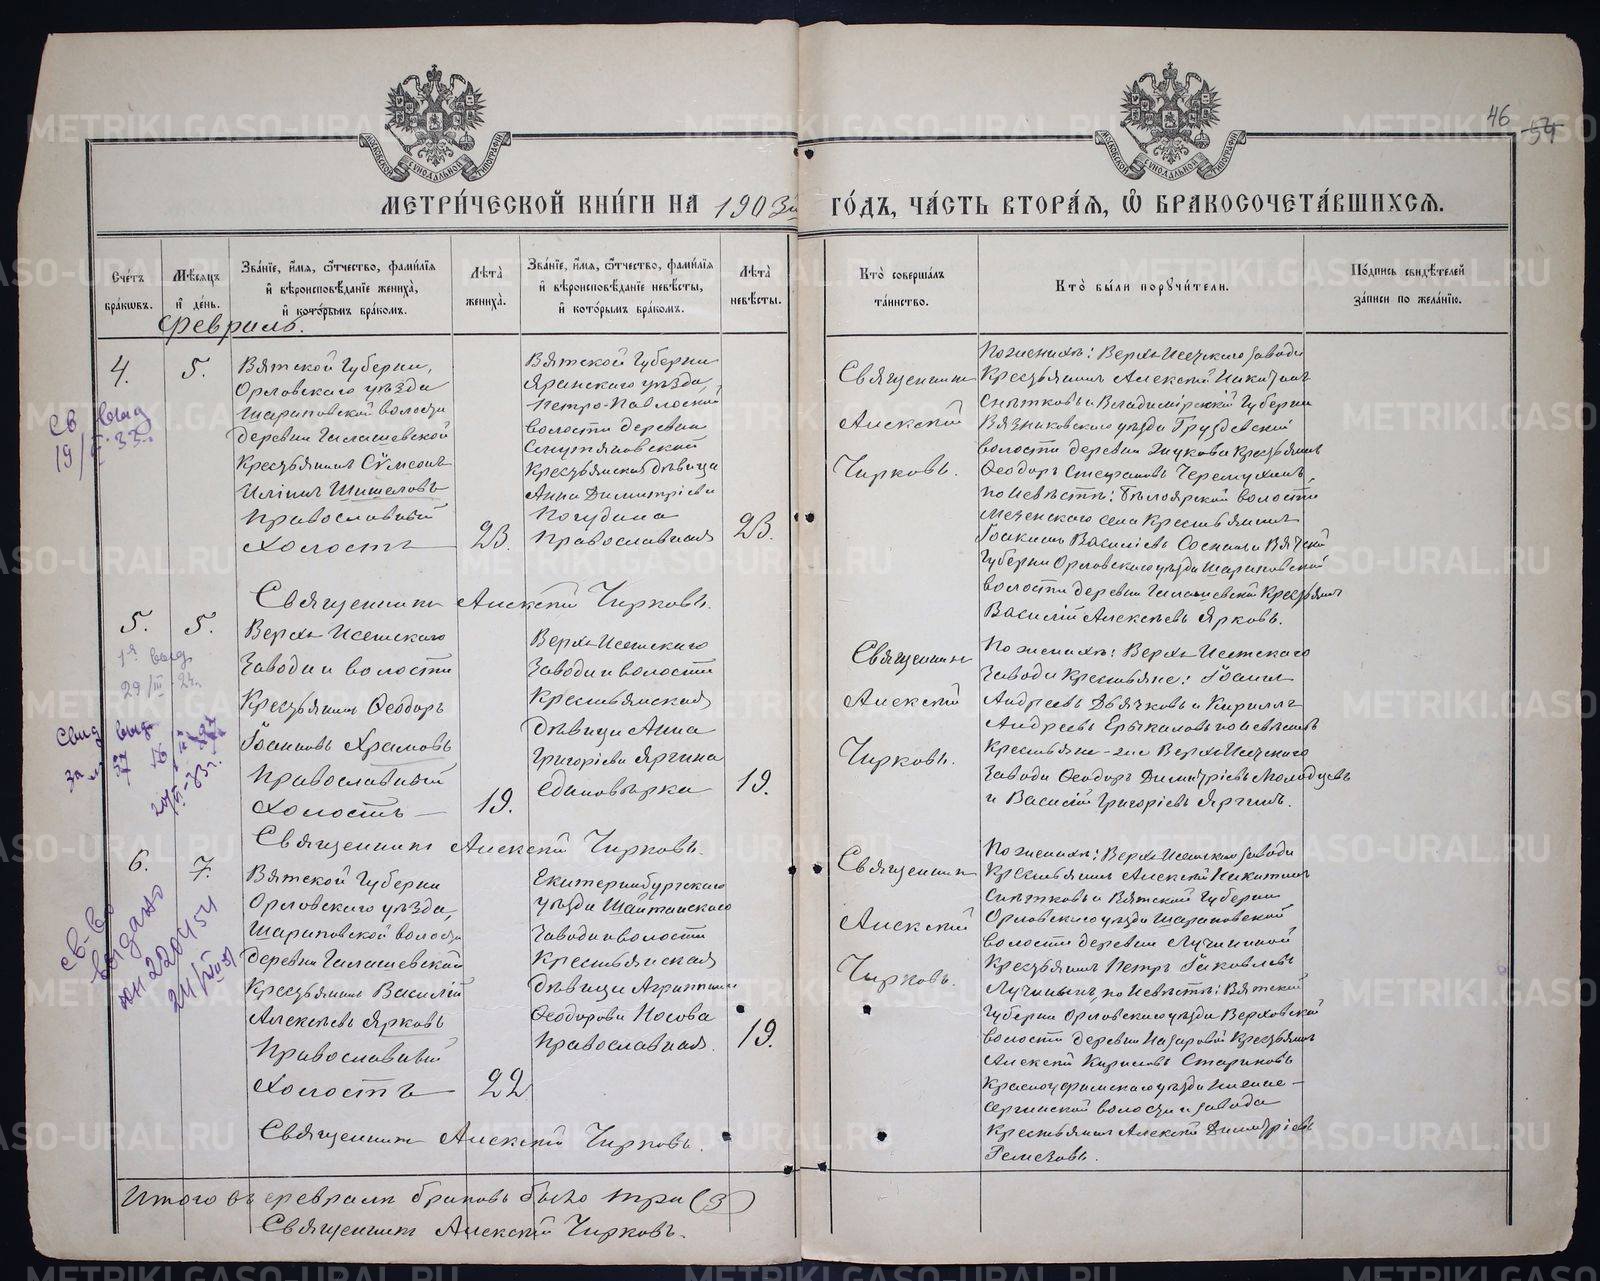 46
54
МЕТРИ́ЧЕСКОЙ КНИ́ГИ НА 1903й ГО́ДЪ, ЧА́СТЬ ВТОРА́Я, Ѡ БРАКОСОЧЕТА́ВШИХСЯ.
Сче́тъ бра́кωвъ.
Мѣ́сяцъ и҆ де́нь.
Зва́нїе, и҆́мя, ѻ҆́тчество, фами́лїя и҆ вѣроисповѣ́данїе жениха̀, и҆ кото́рымъ бра́комъ.
Лѣта̀ жениха̀.
Зва́нїе, и҆́мя, ѻ҆́тчество, фами́лїя и҆ вѣроисповѣ́данїе невѣ́сты, и҆ кото́рымъ бра́комъ.
Лѣта̀ невѣ́сты.
Кто̀ соверша́лъ та́инство.
Кто̀ бы́ли порꙋчи́тели.
По́дпись свидѣ́телей за́писи по жела́нїю.
Февраль.
4.
5.
Вятской Губерніи,
Орловскаго уѣзда
Шараповской волости
деревни
Крестьянинъ Сѵмеонъ
Иліинъ Шишаловъ
Православный
Холостъ
23.
Вятской Губерніи
Яранскаго уѣзда,
Петро-Павловской
волости деревни
Крестьянская дѣвица
Анна Димитріева
Погудина
Православная
23.
Священникъ
Алексѣй
Чирковъ.
По женихѣ: Верхъ-Исетскаго завода
Крестьянинъ Алексѣй Никитинъ
Снѣтковъ и Владимірской Губерніи
Вязниковскаго уѣзда Груздевской
волости деревни Жуковки Крестьянинъ
Ѳеодоръ Стефановъ Черемухинъ,
по невѣстѣ: Бѣлоярской волости
Мезенскаго села Крестьянинъ
Іоакимъ Василіевъ Соснинъ и Вятской
Губерніи Орловскаго уѣзда Шараповской
волости деревни Крестьянинъ
Василій Алексѣевъ Ярковъ.
Священникъ Алексѣй Чирковъ.
5.
5.
Верхъ-Исетскаго
завода и волости
Крестьянинъ Ѳеодоръ
Іоанновъ Храмовъ
Православный
Холостъ
19.
Верхъ-Исетскаго
завода и волости
Крестьянская
дѣвица Анна
Григоріева Яргина
единовѣрка
19.
Священникъ
Алексѣй
Чирковъ.
По женихѣ: Верхъ-Исетскаго
завода Крестьяне: Іоаннъ
Андреевъ Дьячковъ и Кириллъ
Андреевъ Ерыкаловъ по невѣстѣ
Крестьяне Верхъ-Исетскаго
завода Ѳеодоръ Димитріевъ Молодцевъ
и Василій Григоріевъ Яргинъ.
Священникъ Алексѣй Чирковъ.
6.
7.
Вятской Губерніи
Орловскаго уѣзда,
Шараповской волости
деревни
Крестьянинъ Василій
Алексѣевъ Ярковъ
Православный
Холостъ
22
Екатеринбургскаго
уѣзда Шайтанскаго
завода и волости
Крестьянская
дѣвица Агриппина
Ѳеодорова Носова
Православная.
19.
Священникъ
Алексѣй
Чирковъ.
По женихѣ: Верхъ-Исетскаго завода
Крестьянинъ Алексѣй Никитинъ
Снѣтковъ и Вятской Губерніи
Орловскаго уѣзда Шараповской
волости деревни Лучининой
Крестьянинъ Петръ Іаковлевъ
Лучининъ, по невѣстѣ: Вятской
Губерніи Орловскаго уѣзда Верховской
волости деревни Назаровой Крестьянинъ
Алексѣй Кириловъ Стариковъ
Красноуфимскаго уѣзда Нижне-
Сергинской волости и завода
Крестьянинъ Алексѣй Димитріевъ
Ремезовъ.
Священникъ Алексѣй Чирковъ.
Итого въ февралѣ браковъ было три (3)
Священникъ Алексѣй Чирковъ.
св. выд
19/II-33
1й выд
29/III 24г.
св-во
выдано
24/VIII 51
METRIKI.GASO-URAL.RU